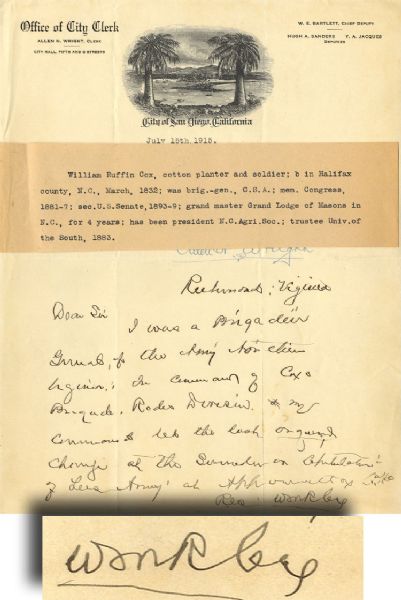 Office of City Clerk
ALLEN H. WRIGHT, CLERK
CITY HALL, FIFTH AND G STREETS
W. E. BARTLETT, CHIEF DEPUTY
HUGH A. SANDERS F. A. JACQUES
DEPUTIES
City of San Diego, California
July 15th 1915.
William Ruffin Cox, cotton planter and soldier; b in Halifax
county, N.C., March, 1832; was brig.-gen., C.S.A.; mem. Congress,
1881-7; sec.U.S.Senate,1893-9; grand master Grand Lodge of Masons in
N.C., for 4 years; has been president N.C.Agri.Soc.; trustee Univ.of
the South, 1883.
Richmond, Virginia
Dear Sir
I was a Brigadier
General, of the Army Northern
Virginia, in command of Cox's
Brigade, Rodes Division. & my
command led the last
charge at the Surrender or Capitulation
of Lees Army at Appomattox
Wm R Cox
Wm R Cox